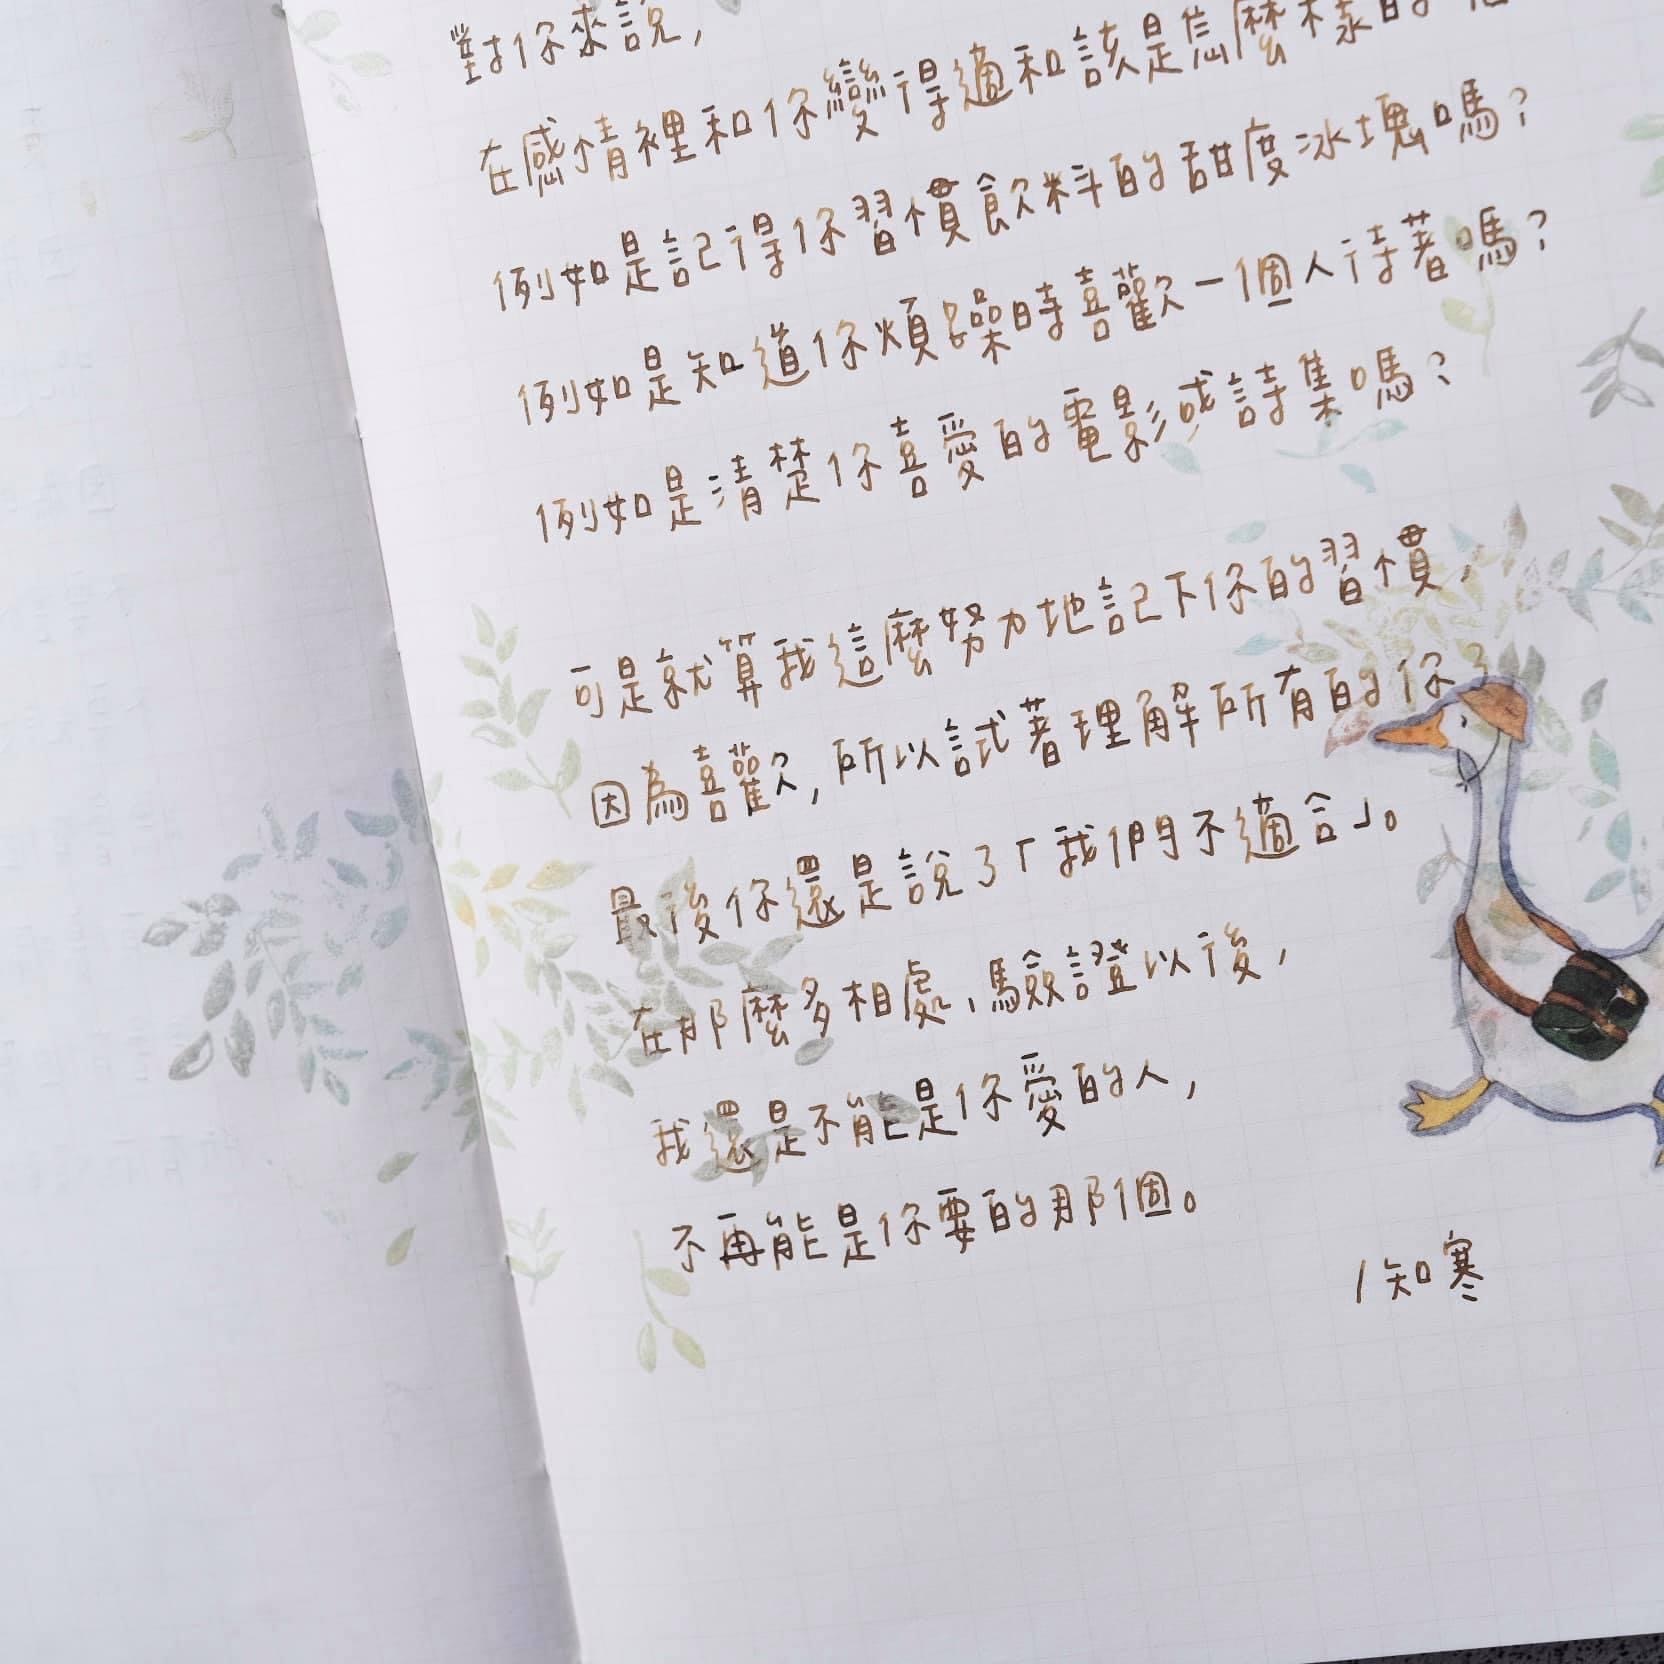 對你來說，
在感情裡和你變得適和該是怎麼樣的
例如是記得你習慣飲料的甜度冰塊嗎？
例如是知道你煩躁時喜歡一個人待著嗎？
例如是清楚你喜愛的電影或詩集嗎？
可是就算我這麼努力地記下你的習慣，
因為喜歡，所以試著理解所有的你，
最後你還是說了「我們不適合」。
在那麼多相處、驗證以後，
我還是不能是你愛的人，
不再能是你要的那個。
/知寒